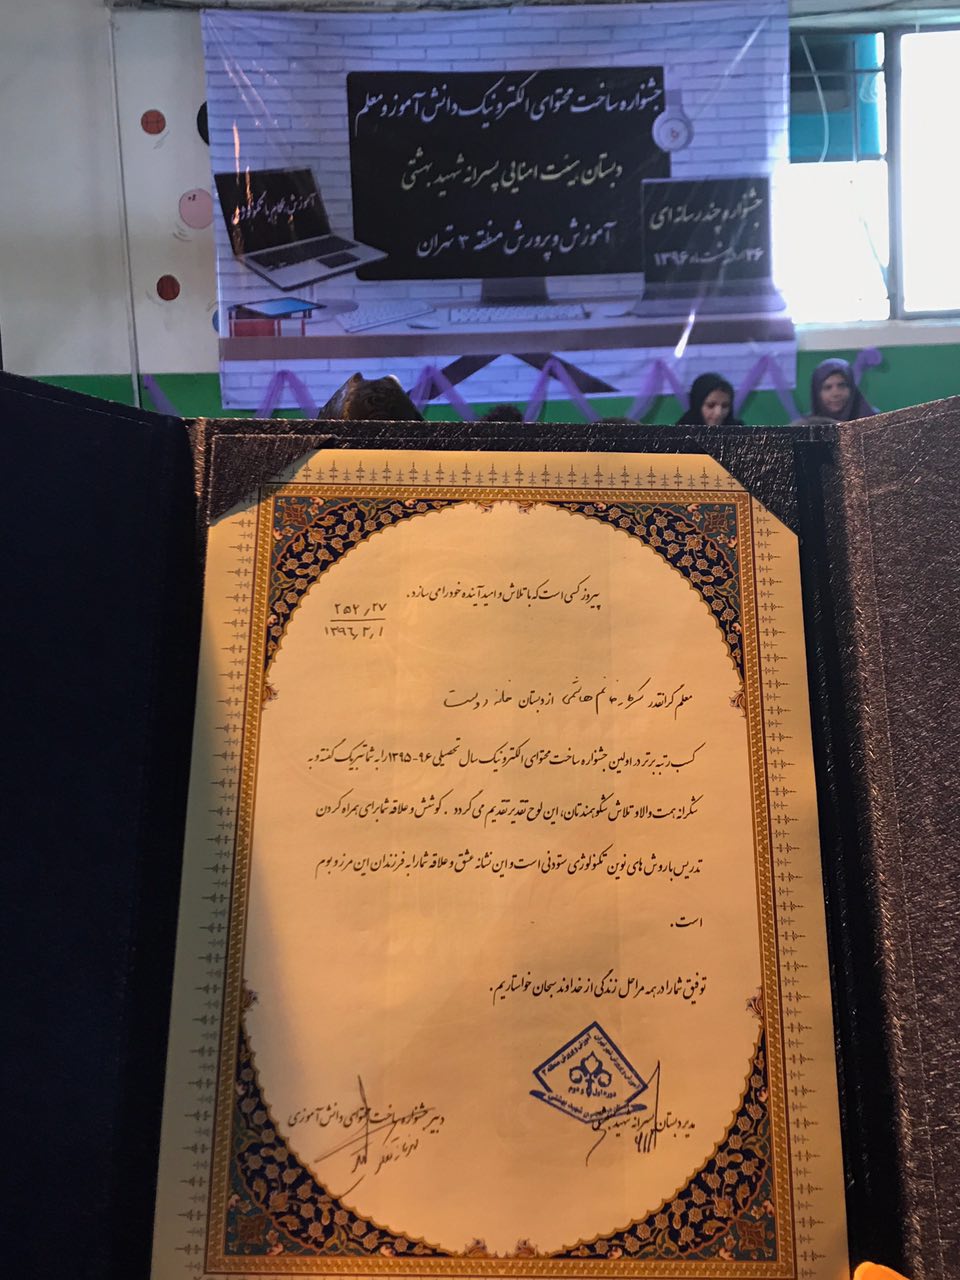 جشنواره ساخت محتوای الکترونیک دانش آموز و معلم
دبستان هیئت امنایی پسرانه شهید بهشتی
آموزش و پرورش منطقه ۳ تهران
جشنواره چند رسانه ای
۱۳۹۶
آموزش با تکنولوژی
پیروز کسی است که با تلاش و امید آینده خود را می سازد.
۲۵۲٫۲۷
۱۳۹۶٫۳٫۱
معلم گرانقدر سرکار خانم هاشمی از دبستان خانه دوست
کسب رتبه برتر در اولین جشنواره ساخت محتوای الکترونیک سال تحصیلی ۹۶-۱۳۹۵ را به شما تبریک گفته و به
شکرانه همت والا و تلاش شکوهمندتان، این لوح تقدیر تقدیم می گردد. کوشش و علاقه شما برای همراه کردن
تدریس با روش های نوین تکنولوژی ستودنی است و این نشانه عشق و علاقه شما را به فرزندان این مرز و بوم
است.
توفیق شما را در همه مراحل زندگی از خداوند سبحان خواستاریم.
آموزش و پرورش شهر تهران
آموزش و پرورش منطقه ۳
دوره اول و دوم
شهید بهشتی
مدیر دبستان پسرانه شهید بهشتی
دبیر جشنواره ساخت محتوای دانش آموزی